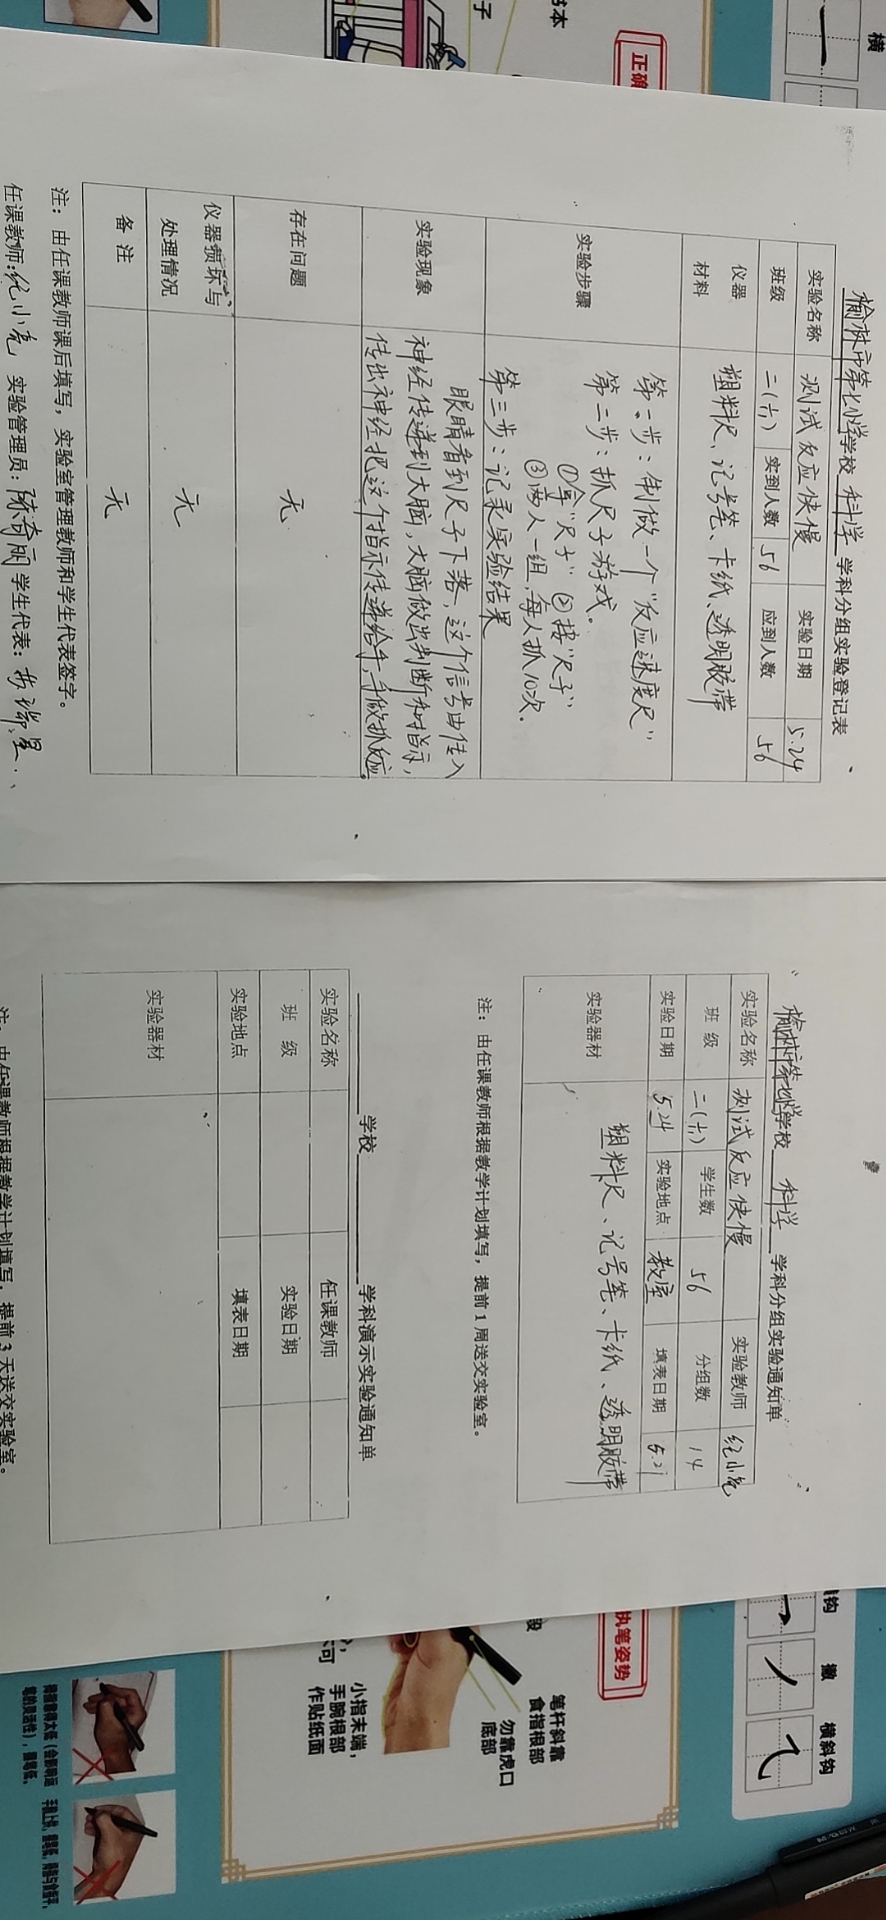 榆林市第七小学学校 科学 学科分组实验登记表
实验名称 测试反应快慢 实验日期 5.24
班级 二(六) 实到人数 56 应到人数 56
仪器材料 塑料尺、记号笔、卡纸、透明胶带
实验步骤
第一步:制做一个“反应速度尺”
第二步:抓尺子游戏。
①拿“尺子” ②接“尺子”
③两人一组,每人抓10次。
第三步:记录实验结果
实验现象
眼睛看到尺子下落,这个信号由传入
神经传递到大脑,大脑做出判断和指示,
传出神经把这个指示传递给手,手做抓反应。
存在问题 无
仪器损坏与处理情况 无
备注 无
注:由任课教师课后填写,实验室管理教师和学生代表签字。
任课教师:纪小亮 实验管理员: 学生代表:
榆林市第七小学学校 科学 学科分组实验通知单
实验名称 测试反应快慢 实验教师 纪小亮
班级 二(六) 学生数 56 分组数 14
实验日期 5.24 实验地点 教室 填表日期 5.21
实验器材 塑料尺、记号笔、卡纸、透明胶带
注:由任课教师根据教学计划填写,提前1周送交实验室。
学校 学科演示实验通知单
实验名称 任课教师
班级 实验日期
实验地点 填表日期
实验器材
注:由任课教师根据教学计划填写,提前3天送交实验室。
横
正确
书本
子
钩 撇 横斜钩
执笔姿势
笔杆斜靠
食指根部
勿靠虎口
底部
小指末端,
手腕根部
作贴纸面